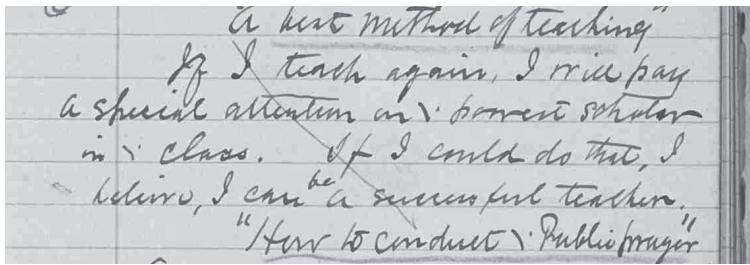 "A best method of teaching"
If I teach again, I will pay
a special attention on \. poorest scholar
in \ class. If I could do that, I
believe, I can be a successful teacher.
"How to conduct \. Public prayer"